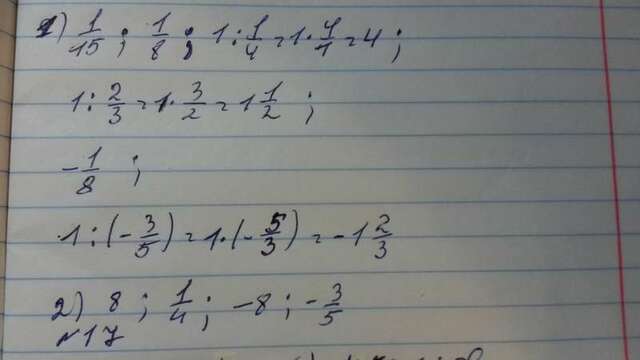 1) 1/15 ; 1/8 ; 1 : 1/4 = 1 · 4/1 = 4 ;
1 : 2/3 = 1 · 3/2 = 1 1/2 ;
- 1/8 ;
1 : (- 3/5) = 1 · (- 5/3) = - 1 2/3
2) 8 ; 1/4 ; -8 ; - 3/5
№17